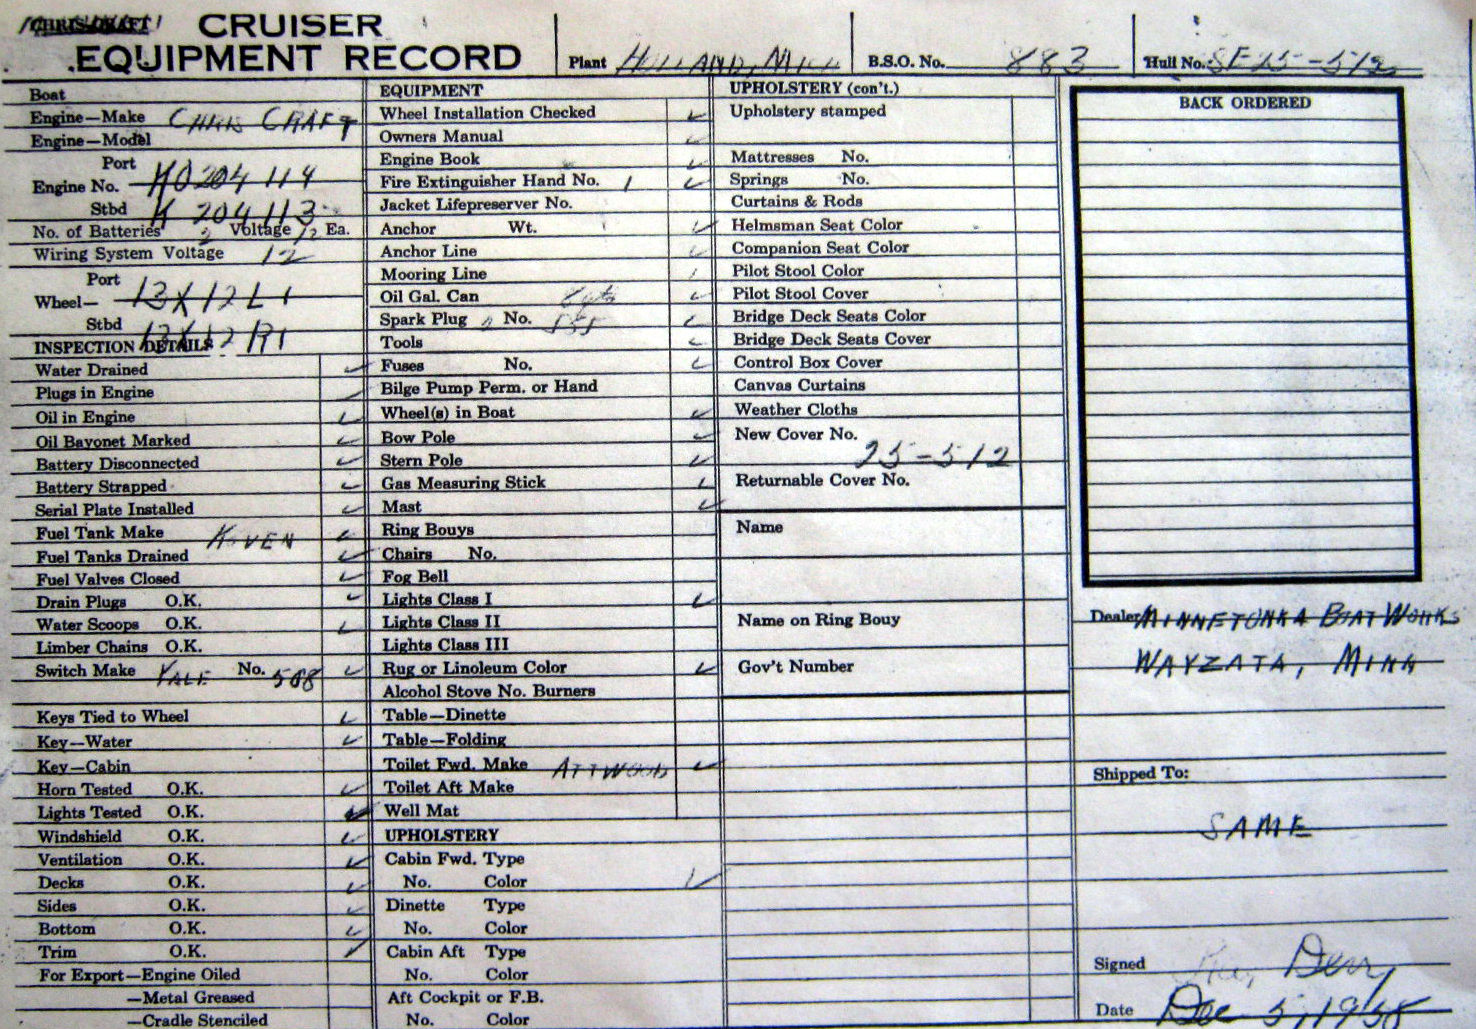 CHRIS-CRAFT CRUISER
EQUIPMENT RECORD
Plant HOLLAND, MICH
B.S.O. No. 883
Hull No. SF25-512
Boat
Engine—Make CHRIS CRAFT
Engine—Model
Port
Engine No. KO 204 114
Stbd K 204 113
No. of Batteries 2 Voltage 12 Ea.
Wiring System Voltage 12
Port
Wheel— 13X12 L1
Stbd 13X12 R1
INSPECTION DETAILS
Water Drained ✓
Plugs in Engine ✓
Oil in Engine ✓
Oil Bayonet Marked ✓
Battery Disconnected ✓
Battery Strapped ✓
Serial Plate Installed ✓
Fuel Tank Make KOVEN ✓
Fuel Tanks Drained ✓
Fuel Valves Closed ✓
Drain Plugs O.K. ✓
Water Scoops O.K. ✓
Limber Chains O.K.
Switch Make YALE No. 508 ✓
Keys Tied to Wheel ✓
Key—Water ✓
Key—Cabin
Horn Tested O.K. ✓
Lights Tested O.K. ✓
Windshield O.K. ✓
Ventilation O.K. ✓
Decks O.K. ✓
Sides O.K. ✓
Bottom O.K. ✓
Trim O.K. ✓
For Export—Engine Oiled
—Metal Greased
—Cradle Stenciled
EQUIPMENT
Wheel Installation Checked ✓
Owners Manual ✓
Engine Book ✓
Fire Extinguisher Hand No. 1 ✓
Jacket Lifepreserver No.
Anchor Wt. ✓
Anchor Line ✓
Mooring Line ✓
Oil Gal. Can 8qts ✓
Spark Plug 2 No. ✓
Tools ✓
Fuses No. ✓
Bilge Pump Perm. or Hand
Wheel(s) in Boat ✓
Bow Pole ✓
Stern Pole ✓
Gas Measuring Stick ✓
Mast ✓
Ring Bouys
Chairs No.
Fog Bell
Lights Class I ✓
Lights Class II
Lights Class III
Rug or Linoleum Color ✓
Alcohol Stove No. Burners
Table—Dinette
Table—Folding
Toilet Fwd. Make ATTWOOD ✓
Toilet Aft Make
Well Mat
UPHOLSTERY
Cabin Fwd. Type
No. Color ✓
Dinette Type
No. Color
Cabin Aft Type
No. Color
Aft Cockpit or F.B.
No. Color
UPHOLSTERY (con't.)
Upholstery stamped
Mattresses No.
Springs No.
Curtains & Rods
Helmsman Seat Color
Companion Seat Color
Pilot Stool Color
Pilot Stool Cover
Bridge Deck Seats Color
Bridge Deck Seats Cover
Control Box Cover
Canvas Curtains
Weather Cloths
New Cover No.
25-512
Returnable Cover No.
Name
Name on Ring Bouy
Gov't Number
BACK ORDERED
Dealer MINNETONKA BOAT WORKS
WAYZATA, MINN
Shipped To:
SAME
Signed
Date Dec 5, 1958